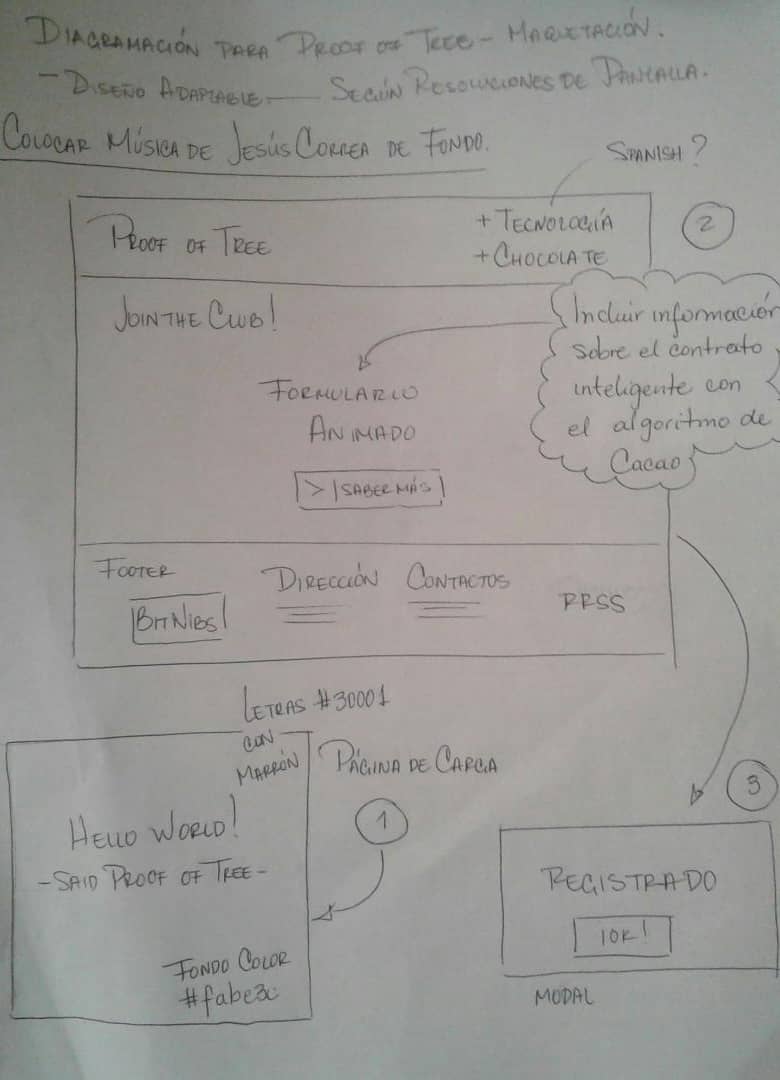 DIAGRAMACIÓN PARA PROOF OF TREE - MAQUETACIÓN.
- DISEÑO ADAPTABLE — SEGÚN RESOLUCIONES DE PANTALLA.
COLOCAR MÚSICA DE JESÚS CORREA DE FONDO.
SPANISH?
PROOF OF TREE
+ TECNOLOGÍA
+ CHOCOLATE
2
JOIN THE CLUB!
Incluir información
sobre el contrato
inteligente con
el algoritmo de
Cacao
FORMULARIO
ANIMADO
> | SABER MÁS
FOOTER
BITNIBS!
DIRECCIÓN
CONTACTOS
RRSS
LETRAS #30001
CON
MARRÓN
PÁGINA DE CARGA
1
HELLO WORLD!
- SAID PROOF OF TREE -
FONDO COLOR
3
REGISTRADO
¡OK!
MODAL